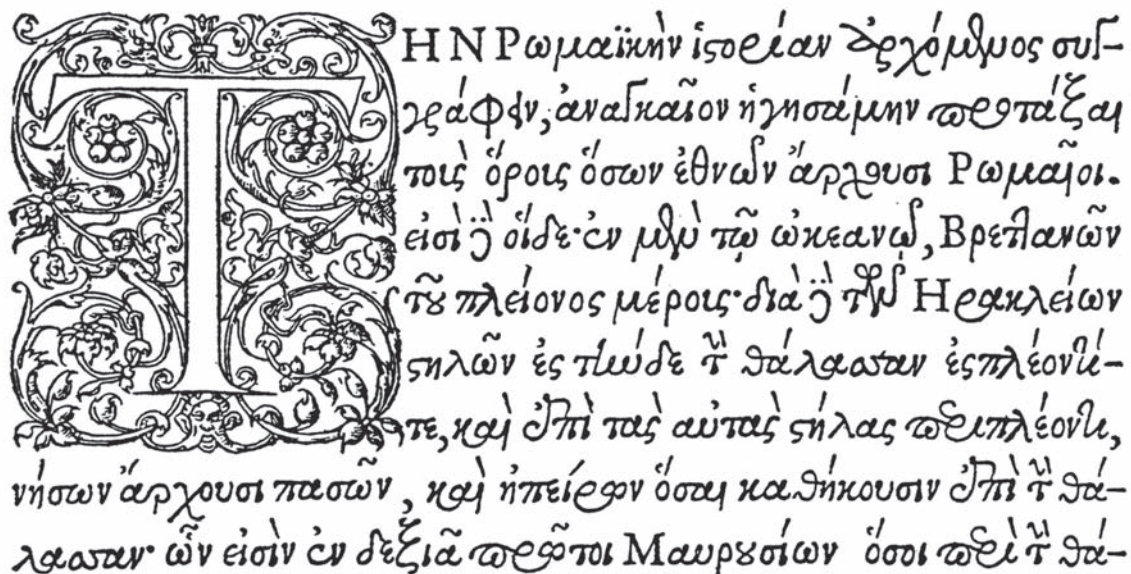 ΤΗΝ Ρωμαϊκὴν ἱστορίαν ἀρχόμενος συγ-
γράφειν, ἀναγκαῖον ἡγησάμην προτάξαι
τοὺς ὅρους ὅσων ἐθνῶν ἄρχουσι Ρωμαῖοι.
εἰσὶ δὲ οἵδε· ἐν μὲν τῷ ὠκεανῷ, Βρετλανῶν
τοῦ πλείονος μέρους· διὰ δὲ τῶν Ηρακλείων
στηλῶν ἐς τήνδε τὴν θάλασσαν ἐσπλέοντί-
τε, καὶ ἐπὶ τὰς αὐτὰς στήλας περιπλέοντι,
νήσων ἄρχουσι πασῶν, καὶ ἠπείρων ὅσαι καθήκουσιν ἐπὶ τὴν θά-
λασσαν· ὧν εἰσὶν ἐν δεξιᾷ πρῶτοι Μαυρουσίων ὅσοι περὶ τὴν θά-